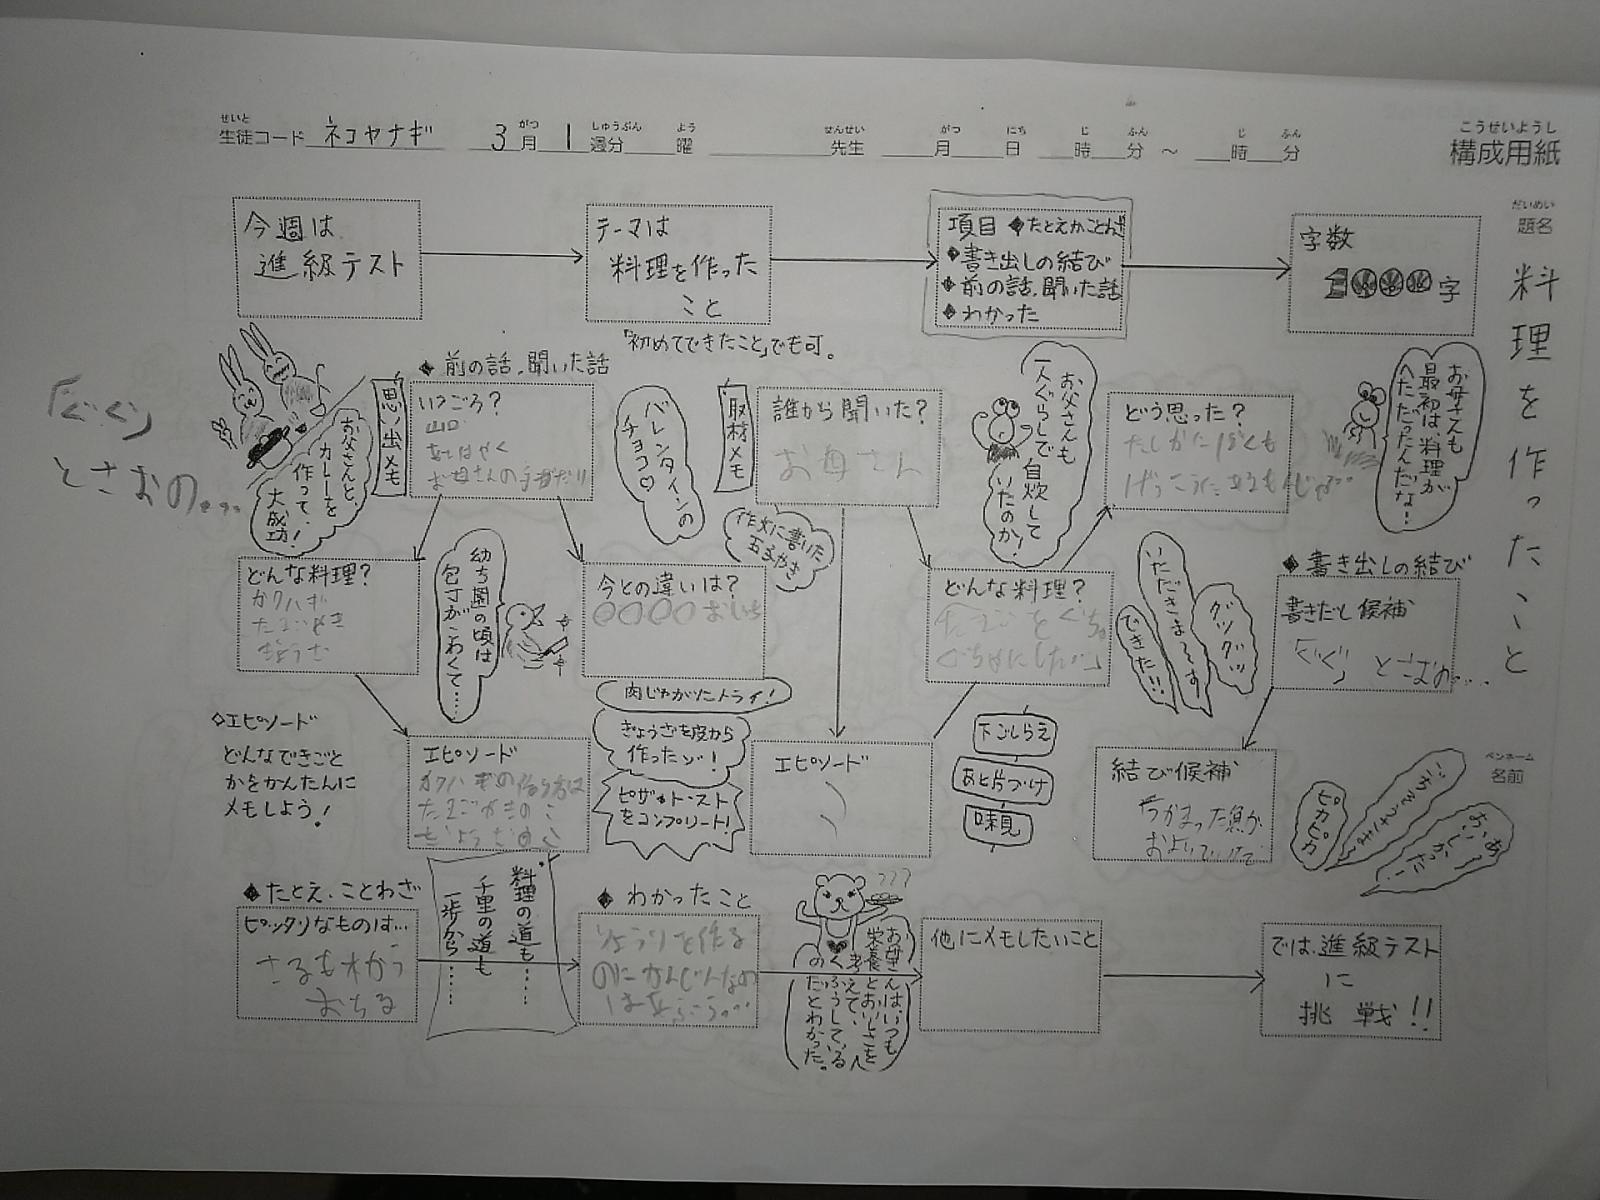 こうせいようし
構成用紙
せいと
生徒コード ネコヤナギ
がつ しゅうぶん よう
3月 1週分 曜
せんせい がつ にち じ ふん じ ふん
先生 月 日 時 分 ～ 時 分
だいめい
題名
料理を作ったこと
今週は
進級テスト
テーマは
料理を作った
こと
「初めてできたこと」でも可。
項目 ◆たとえかことわざ
◆書き出しの結び
◆前の話、聞いた話
◆わかった
字数
字
◆前の話、聞いた話
思い出メモ
お父さんと、
カレーを
作って、
大成功!
いつごろ?
お母さんの手
バレンタインの
チョコ♡
取材メモ
誰から聞いた?
お母さん
お父さんも
一人ぐらしで
自炊して
いたのか!
どう思った?
たしかにぼくも
お母さんも
最初は、料理が
へただったんだな!
「ぐぐ」
とさおの。。。
どんな料理?
幼ち園の頃は
包丁がこわくて……
今との違いは?
作文に書いた
玉子やき
どんな料理?
たまごをぐちゃ
ぐちゃにした
できた!!
いただきま〜す
グツグツ
◆書き出しの結び
書きだし候補
「ぐぐ」 とさおの....
◇エピソード
どんなできごと
かをかんたんに
メモしよう!
エピソード
肉じゃがにトライ!
ぎょうざを皮から
作ったゾ!
ピザ・トースト
をコンプリート!
エピソード
下ごしらえ
あと片づけ
味見
結び候補
つかまった魚が
およいでいて
ピカピカ
ごちそうさま。
ペンネーム
名前
◆たとえ、ことわざ
ピッタリなものは…
さるも木から
おちる
料理の道も……
千里の道も
一歩から……
◆わかったこと
りょうりを作る
のにかんじんなの
は
お母さんは、いつも
栄養とおいしさを
考えて、
くふうしている
だとわかった。
他にメモしたいこと
では、進級テスト
に
挑戦!!